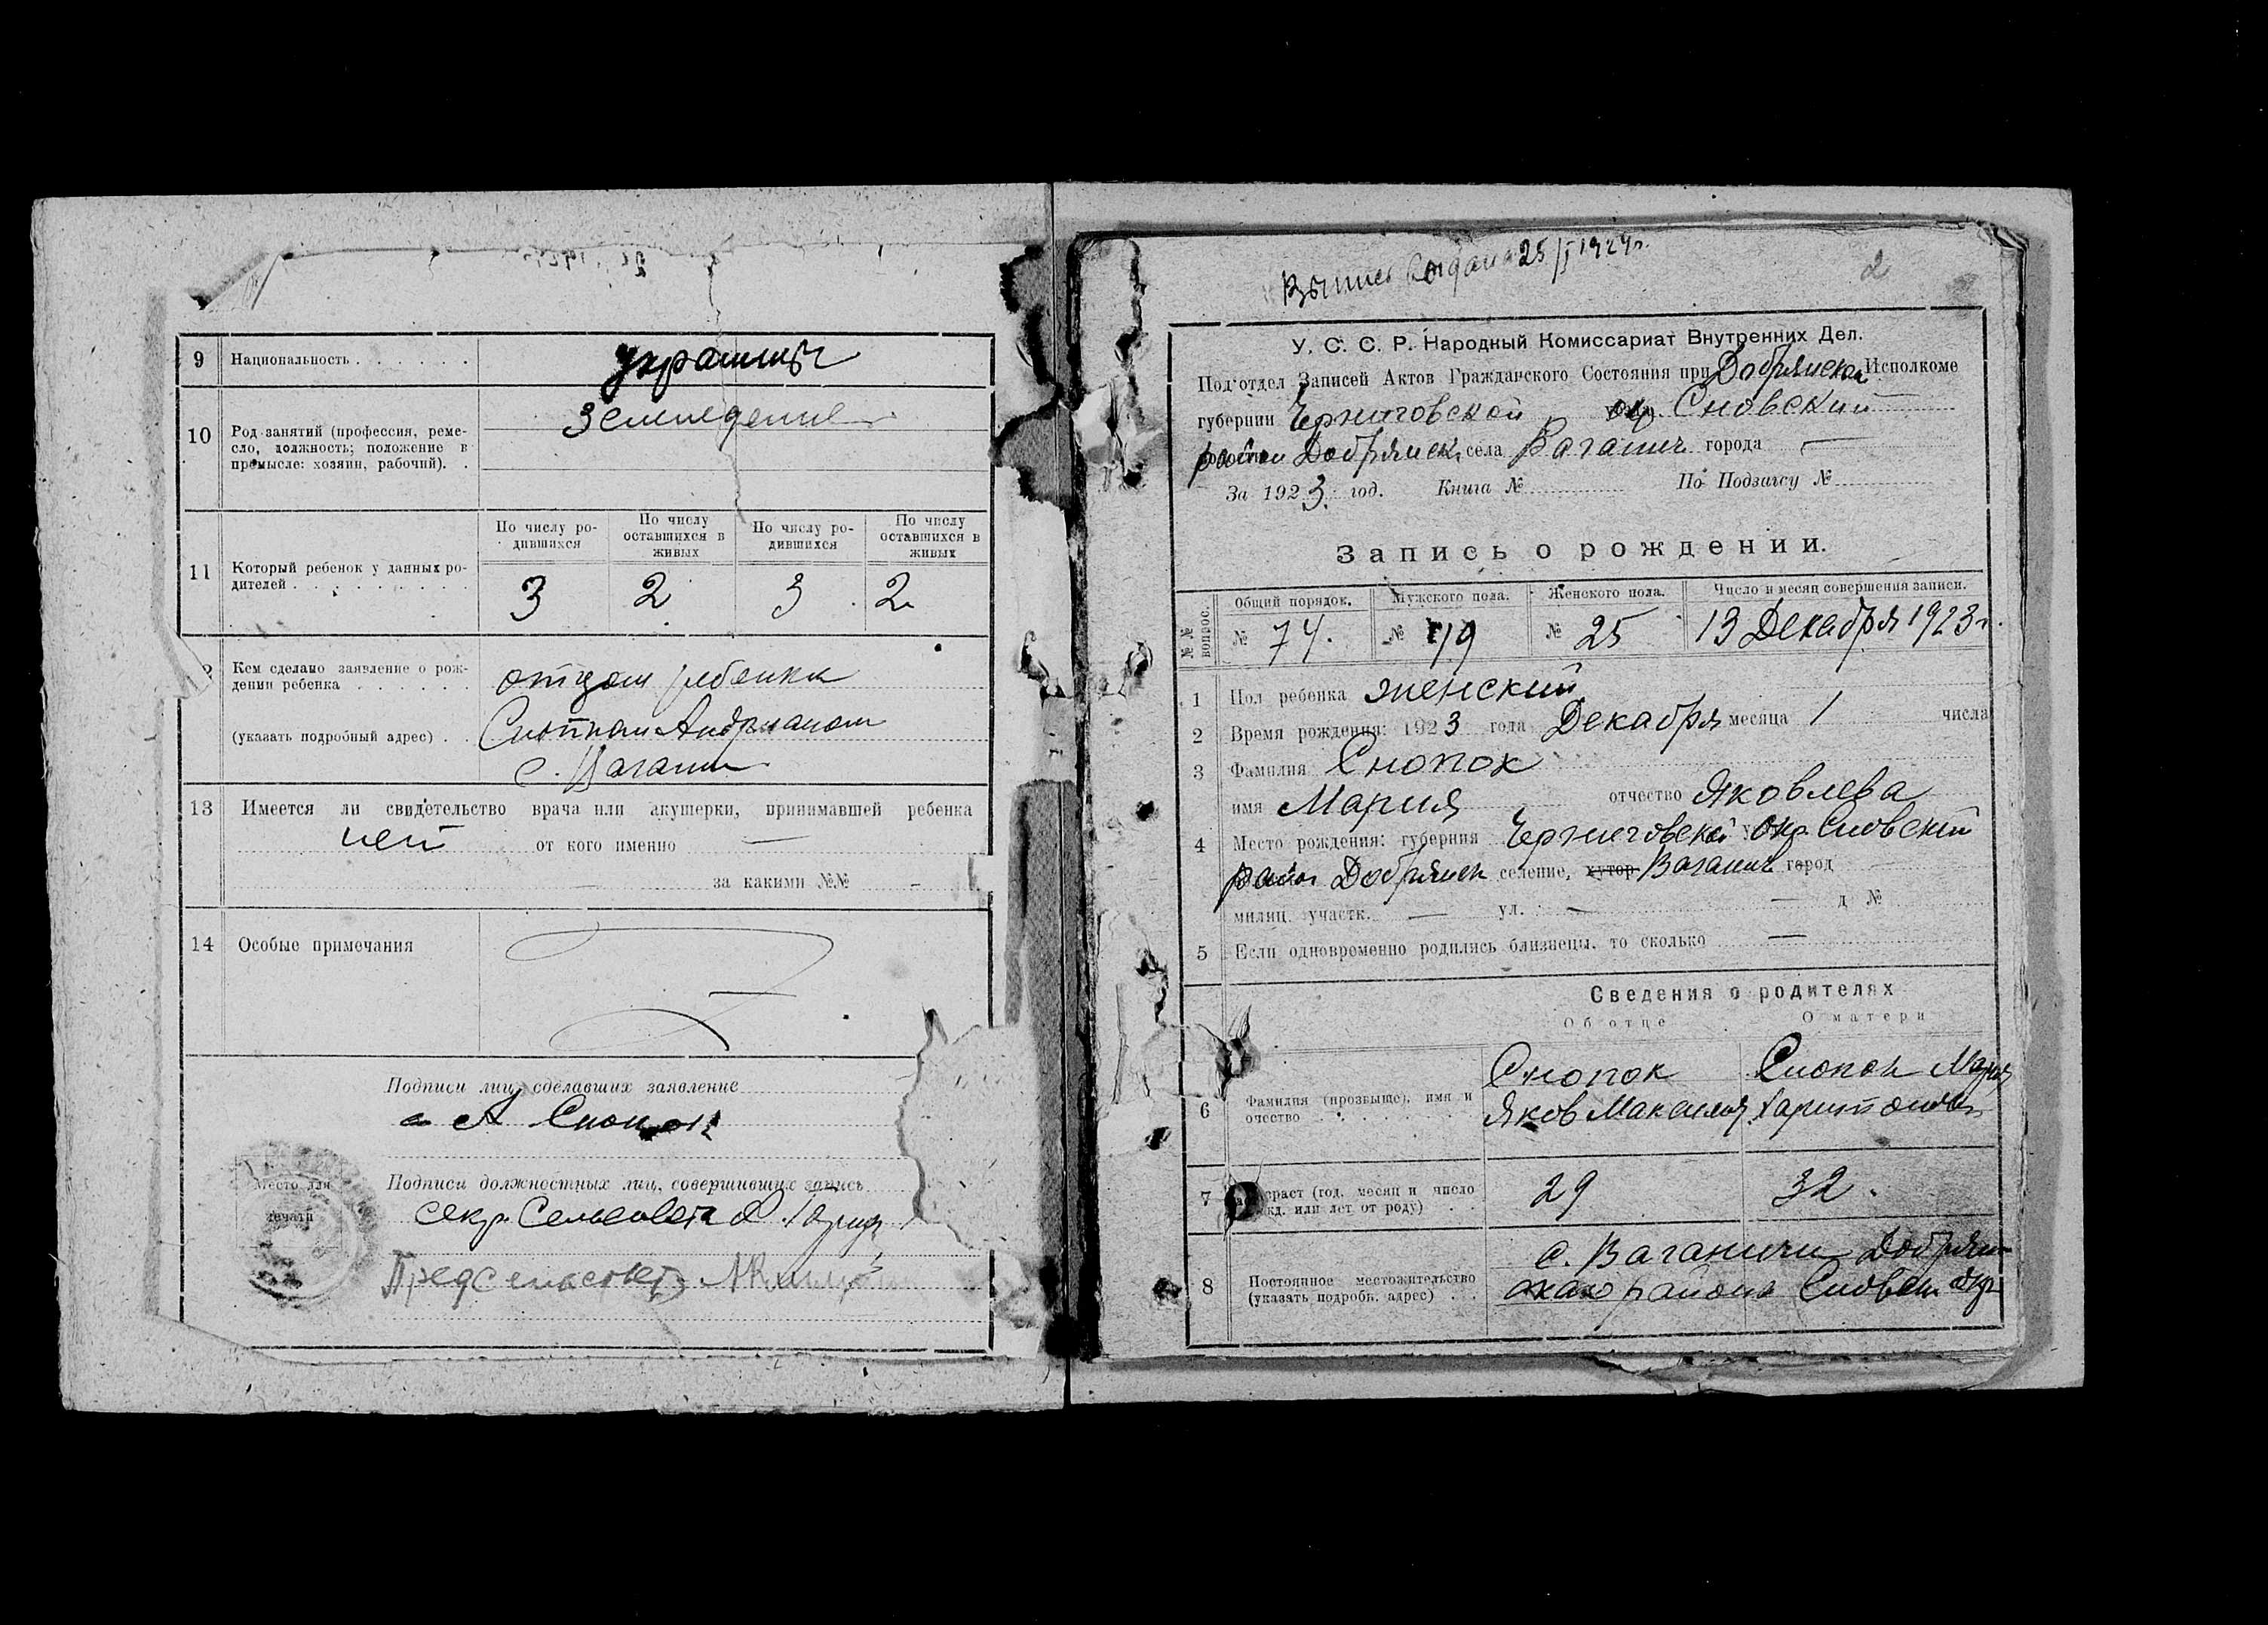 9 Национальность . . . . . . украинцы
10 Род занятий (профессия, реме-
сло, должность; положение в
промысле: хозяин, рабочий). .
земледелие
11 Который ребенок у данных ро-
дителей . . . . . . . . .
По числу ро-
дившихся
По числу
оставшихся в
живых
По числу ро-
дившихся
По числу
оставшихся в
живых
3 2 3 2
Кем сделано заявление о рож-
дении ребенка . . . . . .
отцом ребенка
(указать подробный адрес) . .
Андрианом
с.
13 Имеется ли свидетельство врача или акушерки, принимавшей ребенка
нет от кого именно —
— за какими №№ –
14 Особые примечания
Подписи лиц, сделавших заявление
А Снопок
Место для
печати
Подписи должностных лиц, совершивших запись
секр. Сельсовета
Предсельсовета
25/I 1924г.
2
У. С. С. Р. Народный Комиссариат Внутренних Дел.
Под'отдел Записей Актов Гражданского Состояния при Добрянском Исполкоме
губернии Черниговской окр. Сновский
район Добрянск. села Ваганич города —
За 1923. год. Книга № По Подзагсу №
Запись о рождении.
№ № вопрос.
Общий порядок. Мужского пола. Женского пола. Число и месяц совершения записи.
№ 74. № 49 № 25 13 Декабря 1923г.
1 Пол ребенка женский
2 Время рождения: 1923 года Декабря месяца 1 числа
3 Фамилия Снопок
имя Мария отчество Яковлева
4 Место рождения: губерния Черниговской Окр. Сновский
район Добрянск селение, хутор Ваганич город
милиц. участк. — ул. — — д №
5 Если одновременно родились близнецы, то сколько —
Сведения о родителях
Об отце О матери
6 Фамилия (прозвище), имя и
очество . . . . . . .
Снопок
Яков Максимов.
Снопок Мария
Харитонова
7 Возраст (год, месяц и число
рожд. или лет от роду) . .
29 32.
8 Постоянное местожительство
(указать подробн. адрес) . .
с. Ваганичи Добрян-
скаго района Сновск. Окр